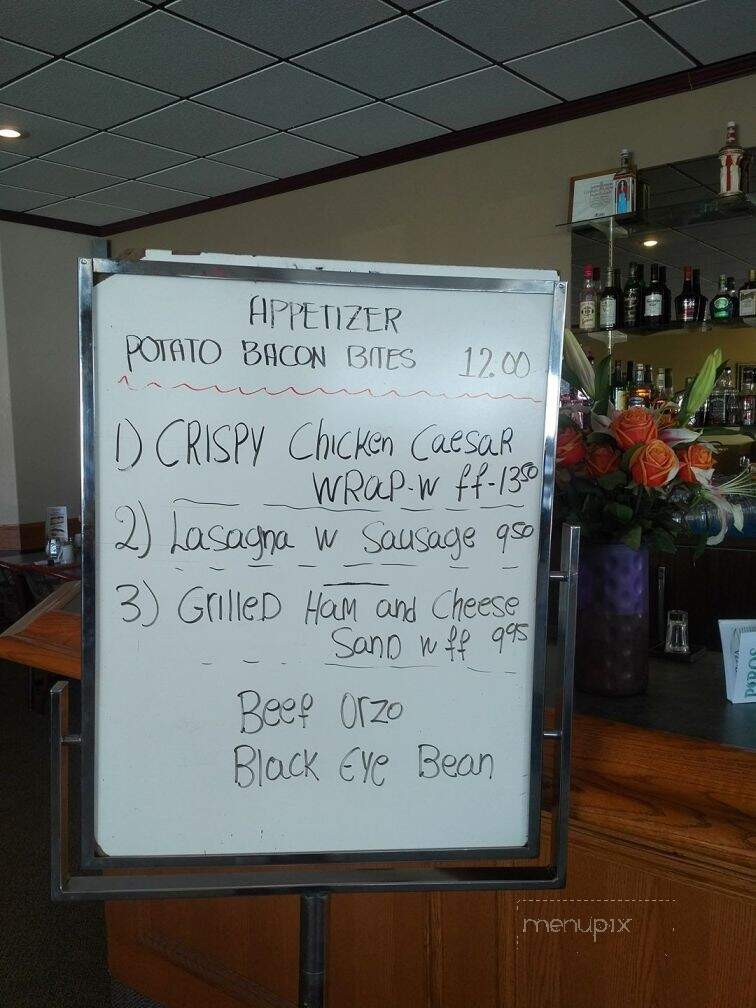 APPETIZER
POTATO BACON BITES 12.00
1) CRISPY Chicken CaesaR
WRaP-W ff-13 50
2) Lasagna W Sausage 9 50
3) GrilleD HaM and Cheese
SanD W ff 9 95
Beef Orzo
Black Eye Bean
menupix